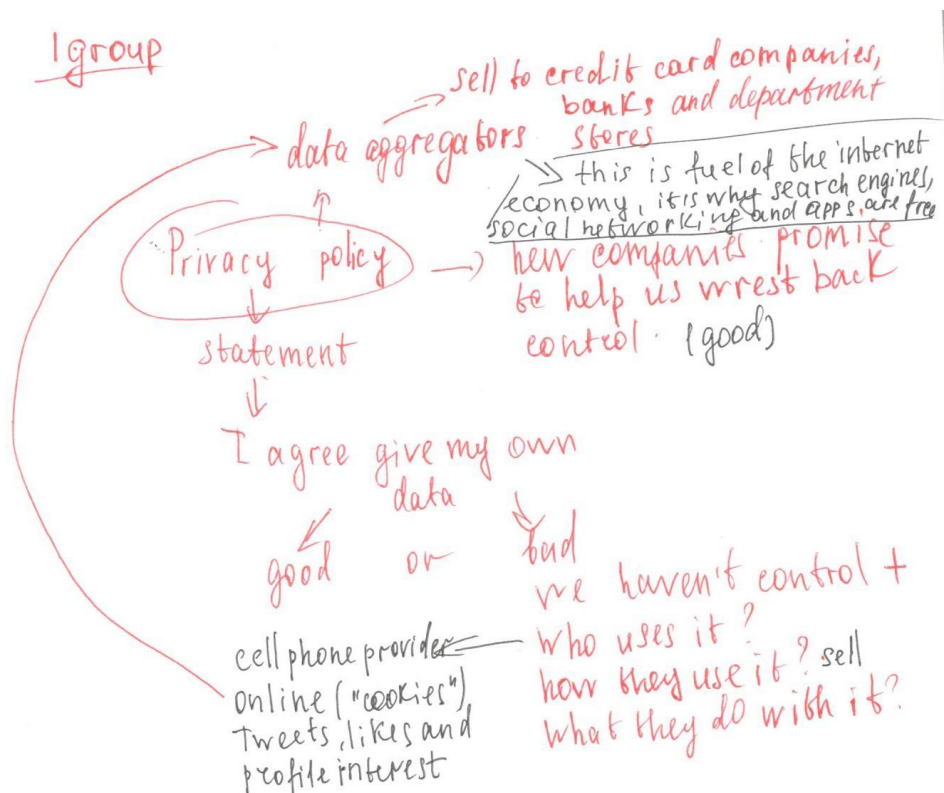 1 group
sell to credit card companies,
banks and department
data aggregators stores
this is fuel of the internet
economy, it is why search engines,
social networking and apps, are free
Privacy policy
new companies promise
to help us wrest back
control. (good)
statement
I agree give my own
data
good or bad
we haven't control +
who uses it?
how they use it? sell
what they do with it?
cell phone provider
online ("cookies")
tweets, likes and
profile interest